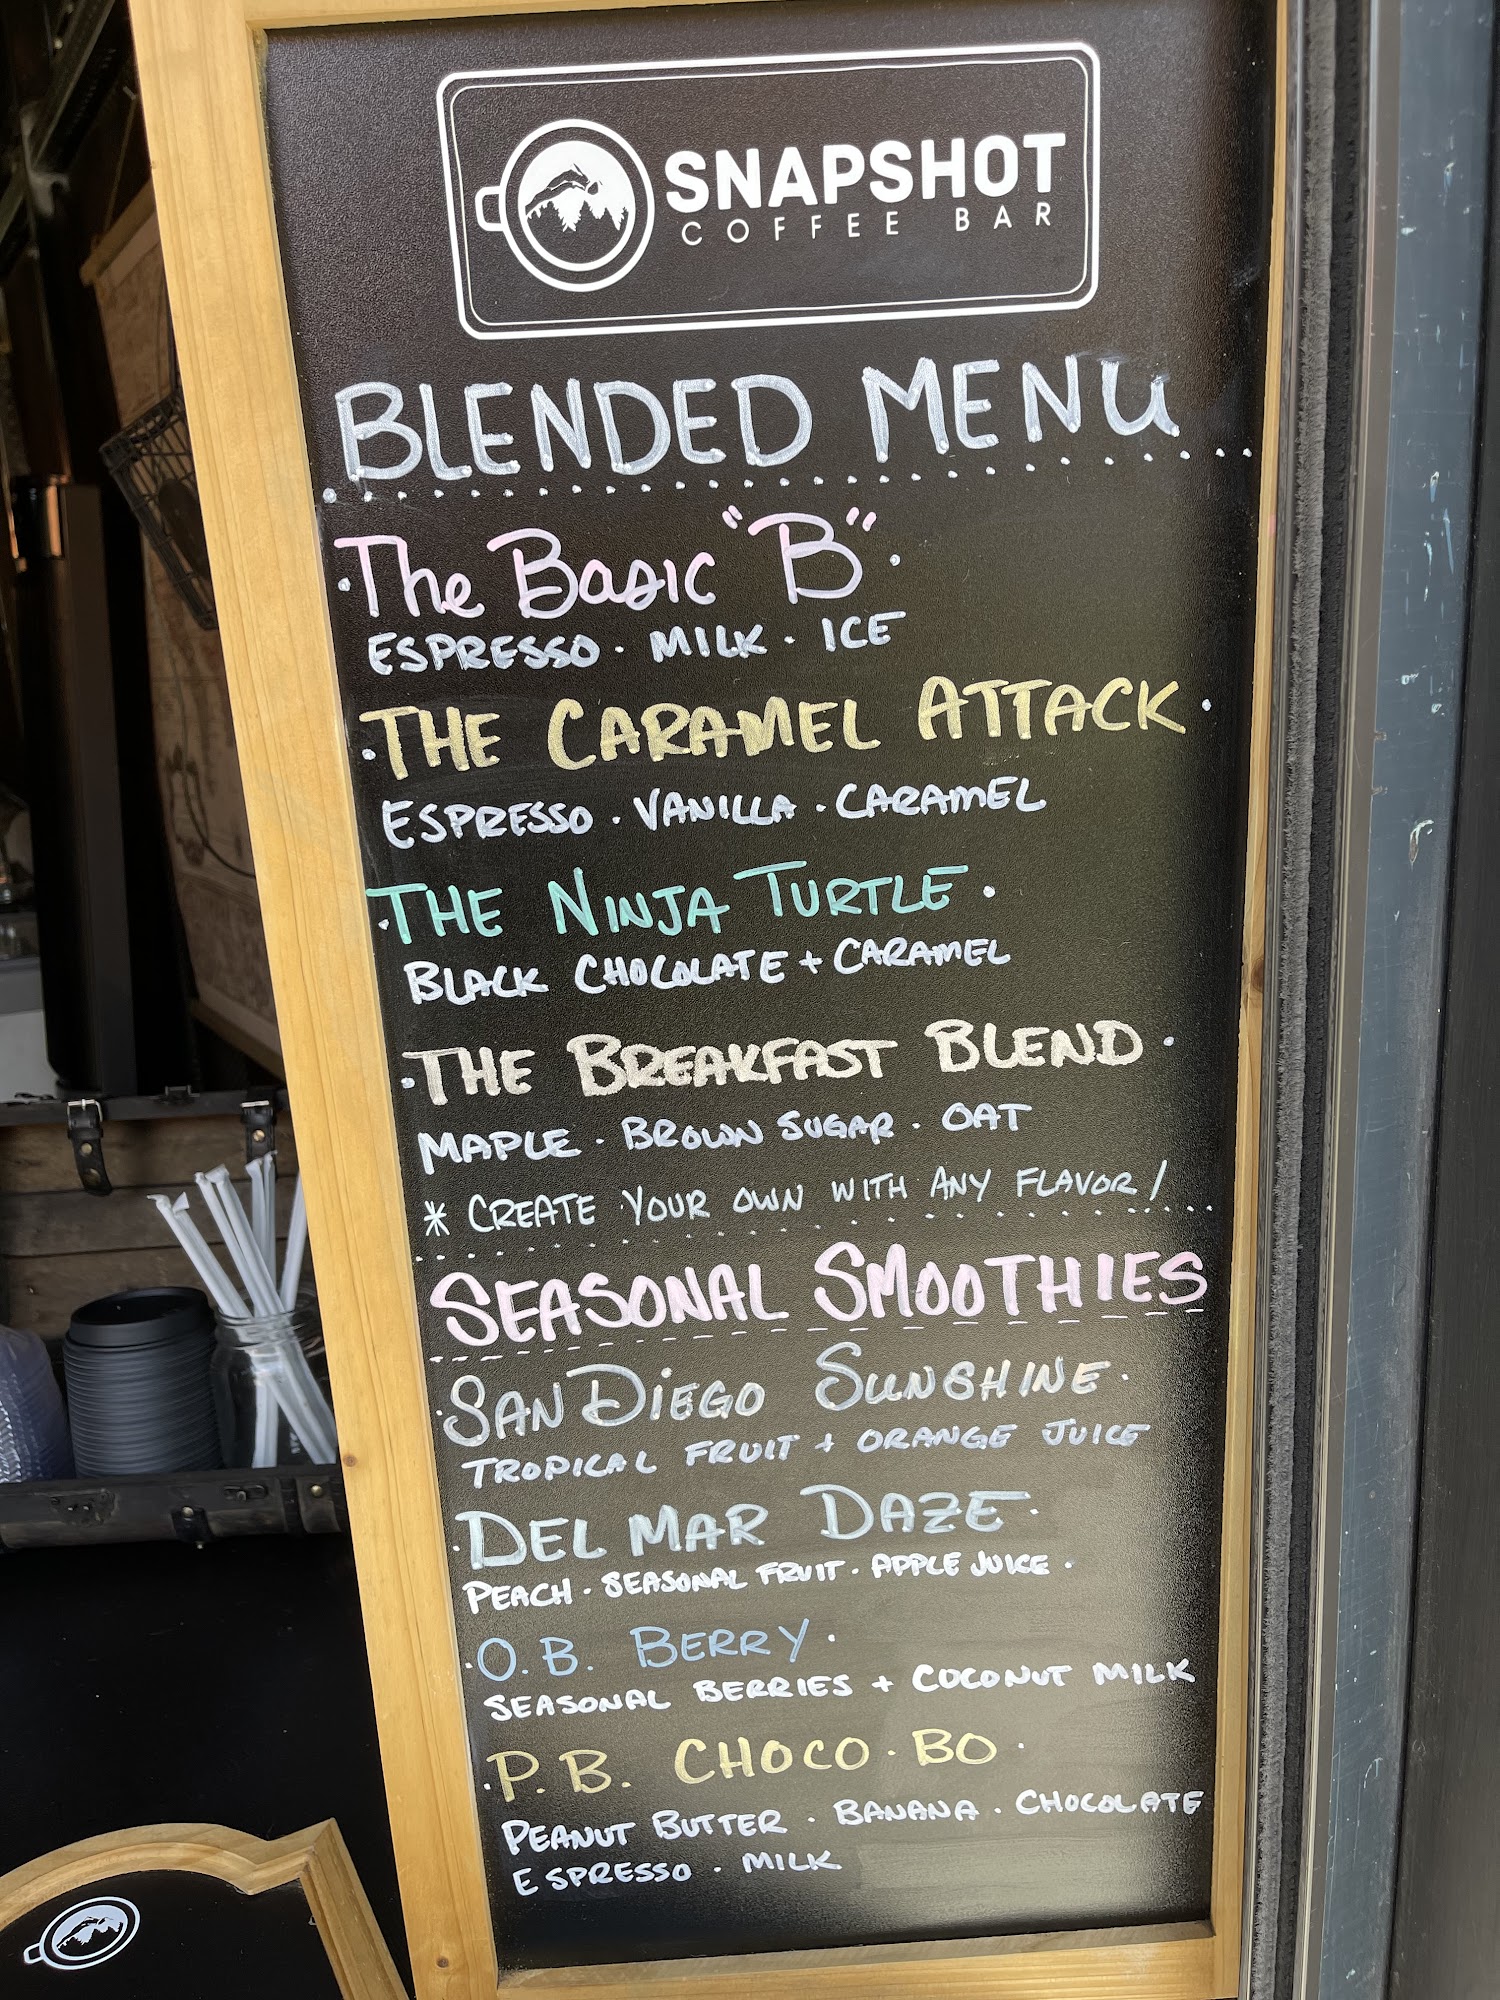 SNAPSHOT
COFFEE BAR
BLENDED MENU
· The Basic "B" ·
ESPRESSO · MILK · ICE
· THE CARAMEL ATTACK ·
ESPRESSO · VANILLA · CARAMEL
· THE NINJA TURTLE ·
BLACK CHOCOLATE + CARAMEL
· THE BREAKFAST BLEND ·
MAPLE · BROWN SUGAR · OAT
* CREATE YOUR OWN WITH ANY FLAVOR!
SEASONAL SMOOTHIES
· SAN DIEGO SUNSHINE ·
TROPICAL FRUIT + ORANGE JUICE
· DEL MAR DAZE ·
PEACH · SEASONAL FRUIT · APPLE JUICE ·
· O.B. BERRY ·
SEASONAL BERRIES + COCONUT MILK
· P.B. CHOCO · BO ·
PEANUT BUTTER · BANANA · CHOCOLATE
ESPRESSO · MILK